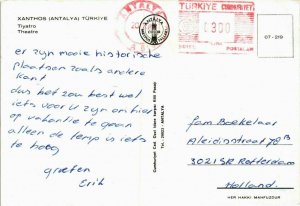 XANTHOS (ANTALYA) TÜRKİYE
Tiyatro
Theatre
ANTALYA
TÜRKİYE CUMHURİYETİ
0300
POSTALARI
07-219
er zyn mooie historische
plaatsen zoals andere
kant
dus het zou best wel
iets voor u zyn om hier
op vakantie te gaan
alleen de temp is iets
te hoog
groeten
Erik
fam. Boekelaar
Aleidisstraat 78B
3021SR Rotterdam
Holland.
HER HAKKI MAHFUZDUR